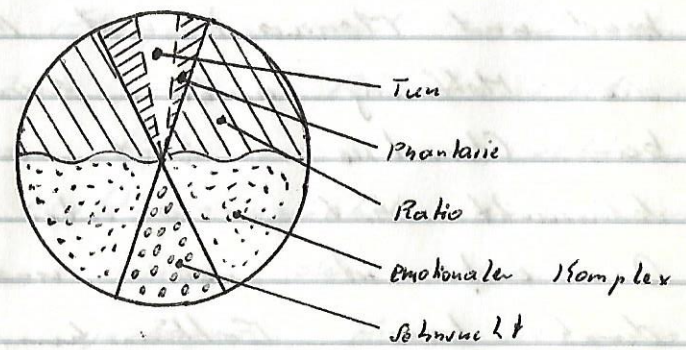 Tun
Phantasie
Ratio
emotionaler Komplex
Sehnsucht